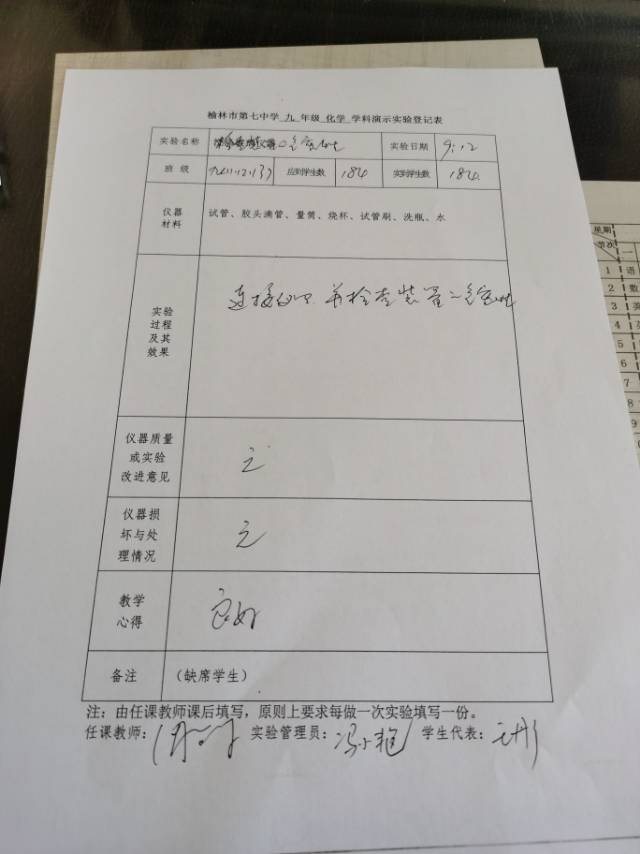 榆林市第七中学 九 年级 化学 学科演示实验登记表
实验名称 气密性 实验日期 9.12
班级 应到学生数 184 实到学生数 184
仪器材料 试管、胶头滴管、量筒、烧杯、试管刷、洗瓶、水
实验过程及其效果 连接仪器 并检查装置气密性
仪器质量或实验改进意见 无
仪器损坏与处理情况 无
教学心得 良好
备注 （缺席学生）
注：由任课教师课后填写，原则上要求每做一次实验填写一份。
任课教师： 实验管理员： 学生代表：
星期
节次
一
1 语
2 数
3 英
4
5
6
7
8
9